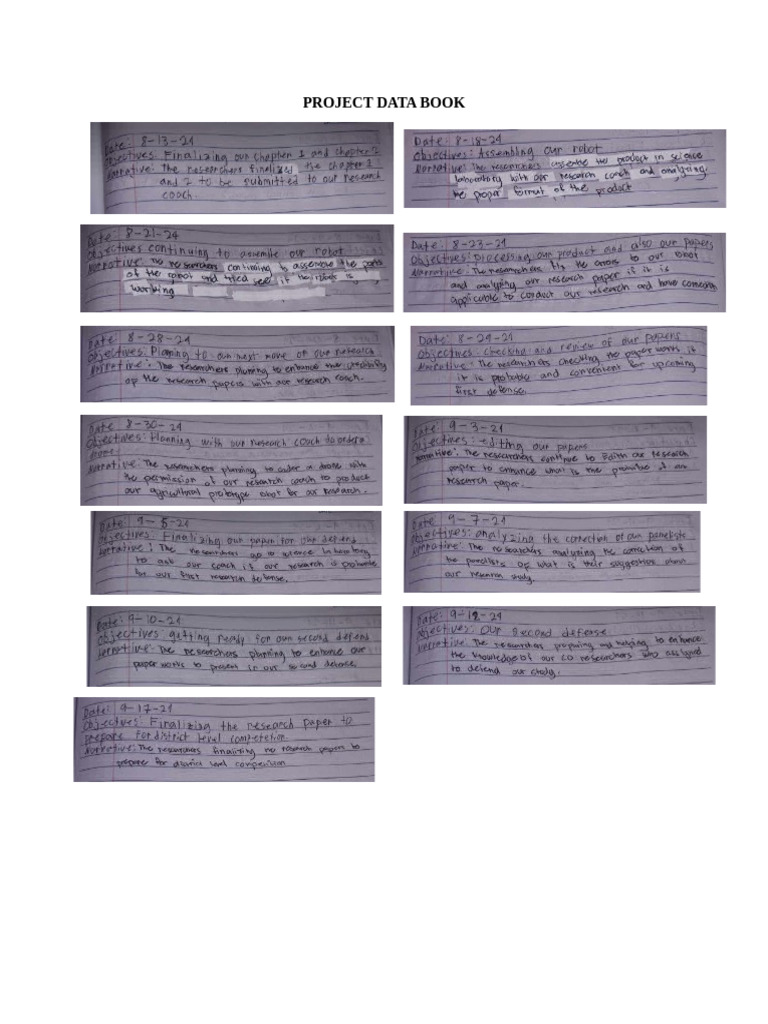 PROJECT DATA BOOK
Date: 8-13-24
Objectives: Finalizing our chapter 1 and chapter 2
Narrative: The researchers finalized the chapter 1
and 2 to be submitted to our research
coach.
Date: 8-18-24
Objectives: Assembling our robot
Narrative: The researchers assemble the product in science
laboratory with our research coach and analyzing
the paper format of the product
Date: 8-21-24
Objectives continuing to assemble our robot
Narrative: The researchers continuing to assemble the parts
of the robot and tried see if the robot is
working
Date: 8-23-24
Objectives: Processing our product and also our papers
Narrative: The researchers fix the errors to our robot
and analyzing our research paper if it is
applicable to conduct our research and have
Date: 8-28-24
Objectives: Planning to our next move of our research
Narrative: The researchers planning to enhance the
of the research papers with our research coach.
Date: 8-29-24
Objectives: checking and review of our papers
Narrative: The researchers checking the paper works if
it is probable and convenient for upcoming
first defense.
Date: 8-30-24
Objectives: Planning with our research coach to order a
drone
Narrative: The researchers planning to order a drone with
the permission of our research coach to produce
our agricultural prototype robot for our research.
Date: 9-3-24
Objectives: editing our papers
Narrative: The researchers continue to our research
paper to enhance what is the of our
research paper.
Date: 9-5-24
Objectives: Finalizing our paper for our defend
Narrative: The researchers go to science laboratory
to ask our coach if our research is probable
for our first research defense.
Date: 9-7-24
Objectives: analyzing the correction of our panelists
Narrative: The researchers analyzing the correction of
the panelists of what is their suggestion about
our research study.
Date: 9-10-24
Objectives: getting ready for our second defend
Narrative: The researchers planning to enhance our
paper works to present in our second defence.
Date: 9-12-24
Objectives: Our second defense
Narrative: The researchers preparing and helping to enhance
the knowledge of our co researchers who assigned
to defend our study.
Date: 9-17-24
Objectives: Finalizing the research paper to
prepare for district level competetion
Narrative: The researchers finalizing the research papers to
prepare for district level competition